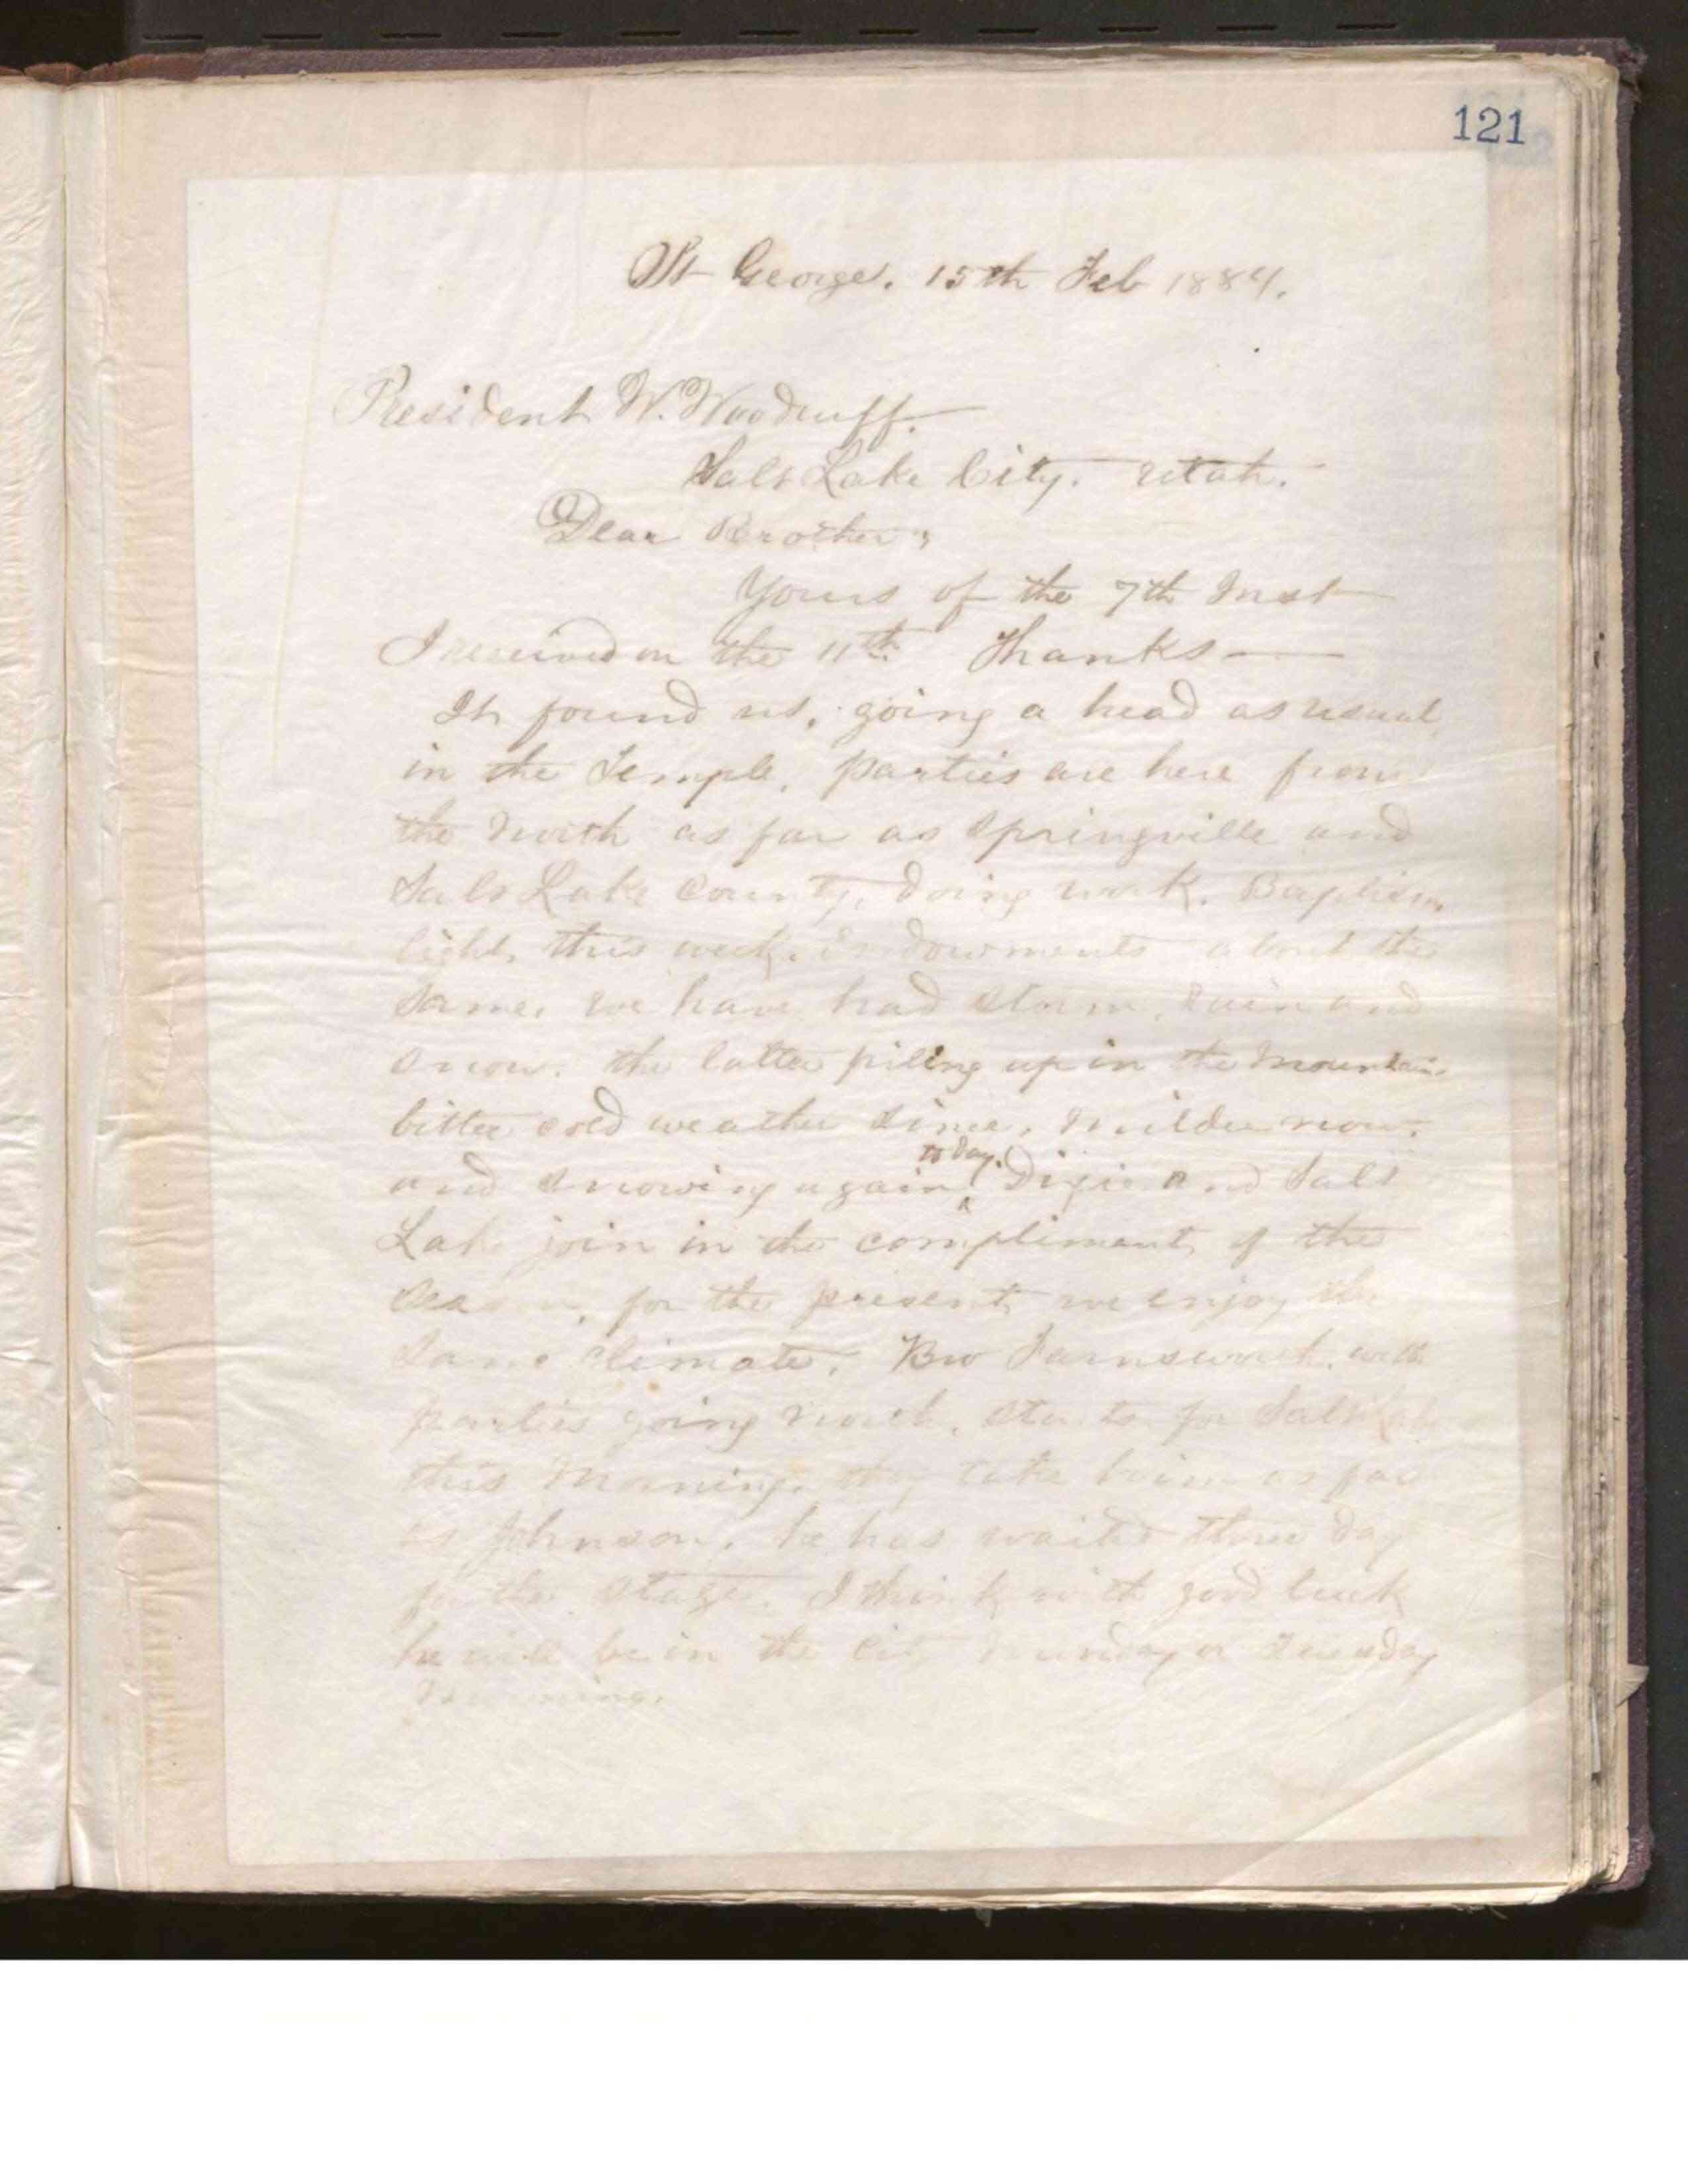 121
St George. 15th Feb 1884.
President W. Woodruff.
Salt Lake City. Utah.
Dear Brother;
Yours of the 7th Inst
I received on the 11th. Thanks —
It found us, going a head as usual
in the Temple, parties are here from
the North as far as Springville and
Salt Lake County, doing work. Baptism
light this week. Endowments about the
same. we have had storm, rain and
snow. the latter piling up in the Mountains
bitter cold weather since, milder now.
to day.
and snowing again. Dixie and Salt
Lake join in the compliments of the
season, for the present we enjoy the
same climate. Bro Farnsworth, with
parties going north, starts for Salt Lake
this Morning. they take him as far
as Johnson. he has waited three day
for the stage. I think with good luck
he will be in the City Munday or Tuesday
Morning.